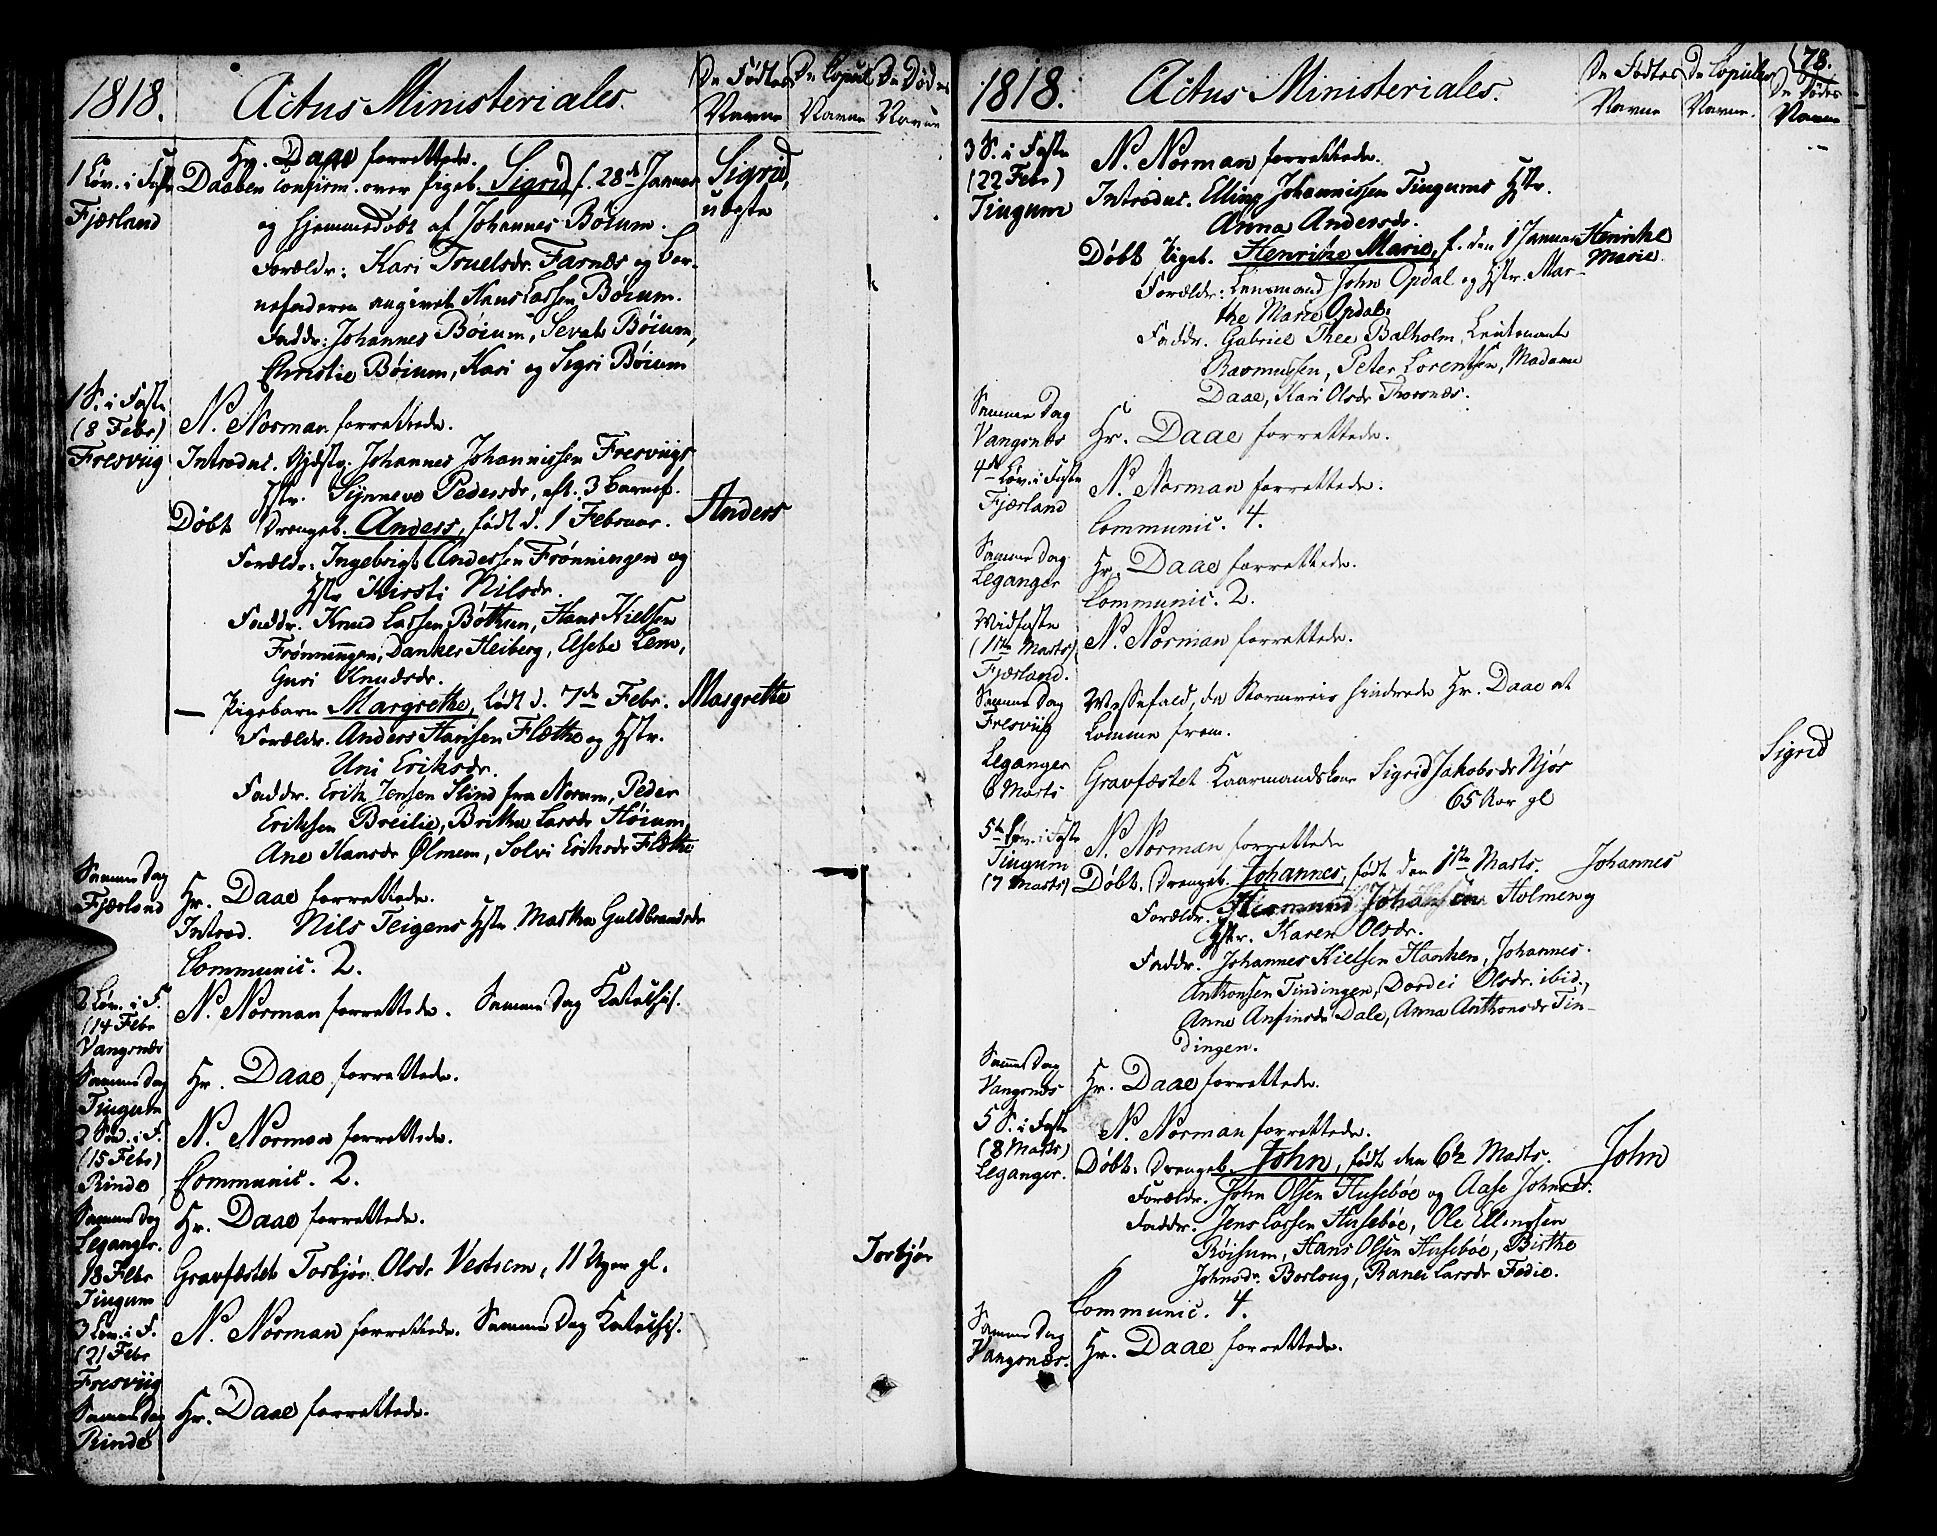 1818. Actus Ministeriales. De Fødtes Navne De Copul. Navne De Dødes Navne
1 Løv. i Faste Fjærland
Hr. Daae forrettede.
Daaben confirm. over Pigeb. Sigrid, f. 28de Januar Sigrid, uægte
og hjemmedøbt af Johannes Böium.
Forældr: Kari Truelsdr. Farnæs og Bar-
nefaderen angivet Hans Lassen Böium.
Faddr: Johannes Böium, Sevat Böium,
Christie Böium, Kari og Sigri Böium
1 S. i Faste (8 Febr) Fresviig
N. Norman forrettede.
Introduc. Gdstg. Johannes Johannissen Fresviigs
Hstr. Synneve Pedersdr, eft. 3 Barnef.
Døbt Drengeb. Anders, født d. 1 Februar. Anders
Forældr: Ingebrigt Andersen Frönningen og
Hstr. Kirsti Nilsdr.
Faddr. Knud Lassen Böthun, Hans Kielsen
Frönningen, Danker Heiberg, Elsebe Lem,
Guri Knudsdr.
— Pigebarn Margrethe, født d. 7de Febr. Margrethe
Forældr. Anders Hansen Flæthe og Hstr.
Uni Eriksdr.
Faddr. Erik Jensen Slind fra Norum, Peder
Eriksen Breilie, Britha Larsdr Höium,
Ane Hansdr Ølmem, Solvi Eriksdr Flæthe
Samme Dag Fjærland
Hr. Daae forrettede.
Introd. Nils Teigens Hstr. Martha Guldbrandsdr
Communic. 2.
2 Løv. i F. (14 Febr Vangsnæs
N. Norman forrettede. Samme Dag Katechis.
Samme Dag Tingum
Hr. Daae forrettede.
2 Sød. i F. (15 Febr) Rinde
N. Norman forrettede.
Communic. 2.
Samme Dag Leganger.
Hr. Daae forrettede.
18 Febr Tingum
Gravfæstet Torbjør Olsdr Vestrem, 11 Uger gl. Torbjør
3 Løv. i F. (21 Febr Fresviig
N. Norman forrettede. Samme Dag Katechis.
Samme Dag Rinde
Hr. Daae forrettede.
78.
1818. Actus Ministeriales. De Fødtes Navne De Copuler Navne. De Dødes Navne
3 S. i Faste (22 Febr) Tingum
N. Norman forrettede.
Introduc. Elling Johannissen Tingums Hstr.
Anna Andersdr.
Døbt Pigeb. Henrikke Marie, f. den 1 Januar Henrikke Marie
Forældr: Lensmand John Opdal og Hstr. Mar-
the Marie Opdal.
Faddr. Gabriel Thee Balholm, Leutenant
Rasmussen, Peter Lorentsen, Madame
Daae, Kari Olsdr Thorsnæs.
Samme Dag Vangsnæs
Hr. Daae forrettede.
4de Løv. i Faste Fjærland
N. Norman forrettede.
Communic. 4.
Samme Dag Leganger
Hr. Daae forrettede.
Communic. 2.
Midfaste (1ste Marts) Fjærland.
N. Norman forrettede.
Samme Dag Fresviig
Messefald, da Stormveir hindrede Hr. Daae at
komme frem.
Leganger 6 Marts
Gravfæstet Kaarmandskone Sigrid Jakobsdr Njøs Sigrid
65 Aar gl
5te Løv. i Faste Tingum (7 Marts)
N. Norman forrettede
Døbt. Drengeb. Johannes, født den 1ste Marts. Johannes
Forældr. Hermund Johansen Holmen og
Hstr. Karen Olsdr.
Faddr. Johannes Kielsen Hanken, Johannes
Anthonsen Tindingen, Dordei Olsdr. ibid.,
Anne Anfinsdr Dale, Anna Anthonsdr Tin-
dingen.
Samme Dag Vangsnæs
Hr. Daae forrettede.
5 S. i Faste (8 Marts) Leganger.
N. Norman forrettede.
Døbt. Drengeb. John, født den 6te Marts. John
Forældr. John Olsen Husebøe og Aase Johnsdr.
Faddr. Jens Lassen Husebøe, Ole Ellingsen
Röisum, Hans Olsen Husebøe, Birthe
Johnsdr. Borloug, Ranei Larsdr Fedie.
Communic. 4.
Samme Dag Vangsnæs.
Hr. Daae forrettede.